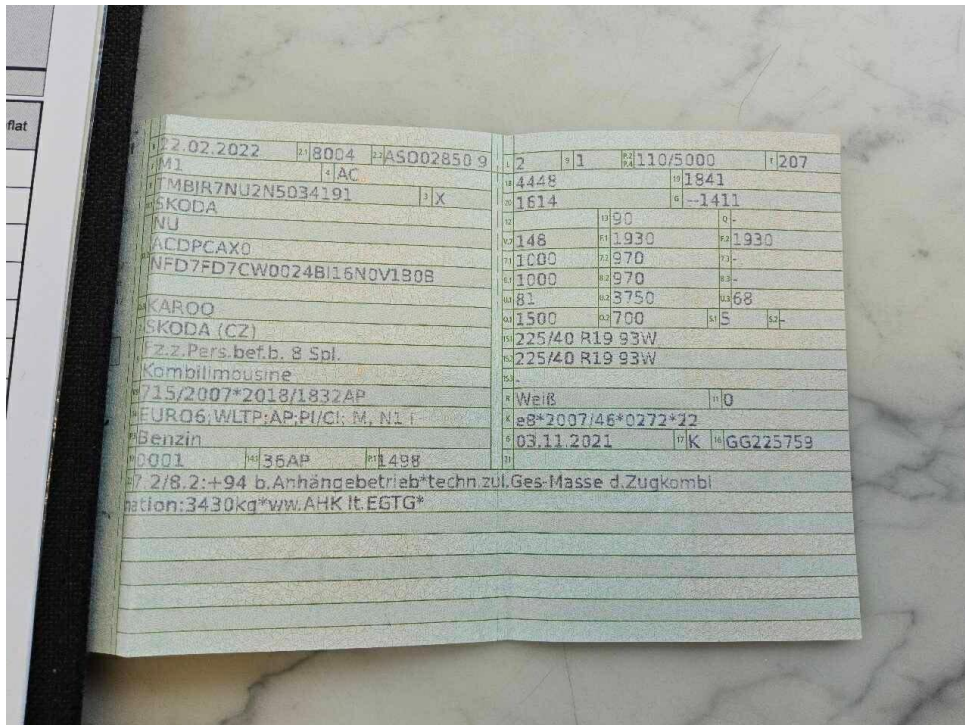 flat
22.02.2022 2.1 8004 2.2 ASO02850 9
M1 4 AC
TMBJR7NU2N5034191 3 X
SKODA
NU
ACDPCAX0
NFD7FD7CW0024BI16N0V1B0B
KAROQ
SKODA (CZ)
Fz.z.Pers.bef.b. 8 Spl.
Kombilimousine
715/2007*2018/1832AP
EURO6;WLTP;AP;PI/CI; M, N1 I
Benzin
0001 14.1 36AP P.1 1498
L 2 9 1 P.2 P.4 110/5000 T 207
18 4448 19 1841
20 1614 G --1411
12 13 90 Q -
V.7 148 F.1 1930 F.2 1930
7.1 1000 7.2 970 7.3 -
8.1 1000 8.2 970 8.3 -
U.1 81 U.2 3750 U.3 68
O.1 1500 O.2 700 S.1 5 S.2 -
15.1 225/40 R19 93W
15.2 225/40 R19 93W
15.3 -
R Weiß 11 0
K e8*2007/46*0272*22
6 03.11.2021 17 K 16 GG225759
21
7.2/8.2:+94 b.Anhängebetrieb*techn.zul.Ges-Masse d.Zugkombi
nation:3430kg*ww.AHK lt.EGTG*